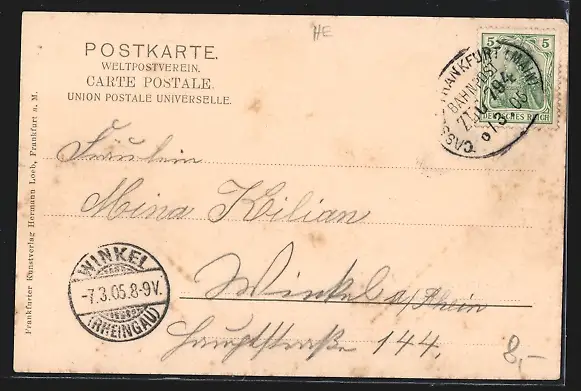 HE
POSTKARTE.
WELTPOSTVEREIN.
CARTE POSTALE.
UNION POSTALE UNIVERSELLE.
5 5
DEUTSCHES REICH
FRANKFURT (MAIN)
BAHNPOST
ZUG 794
CASS
Fräulein
Mina Kilian
Winkel a/Rhein
Hauptstraße 144.
WINKEL
-7.3.05.8-9V.
(RHEINGAU)
8,-
Frankfurter Kunstverlag Hermann Loeb, Frankfurt a. M.